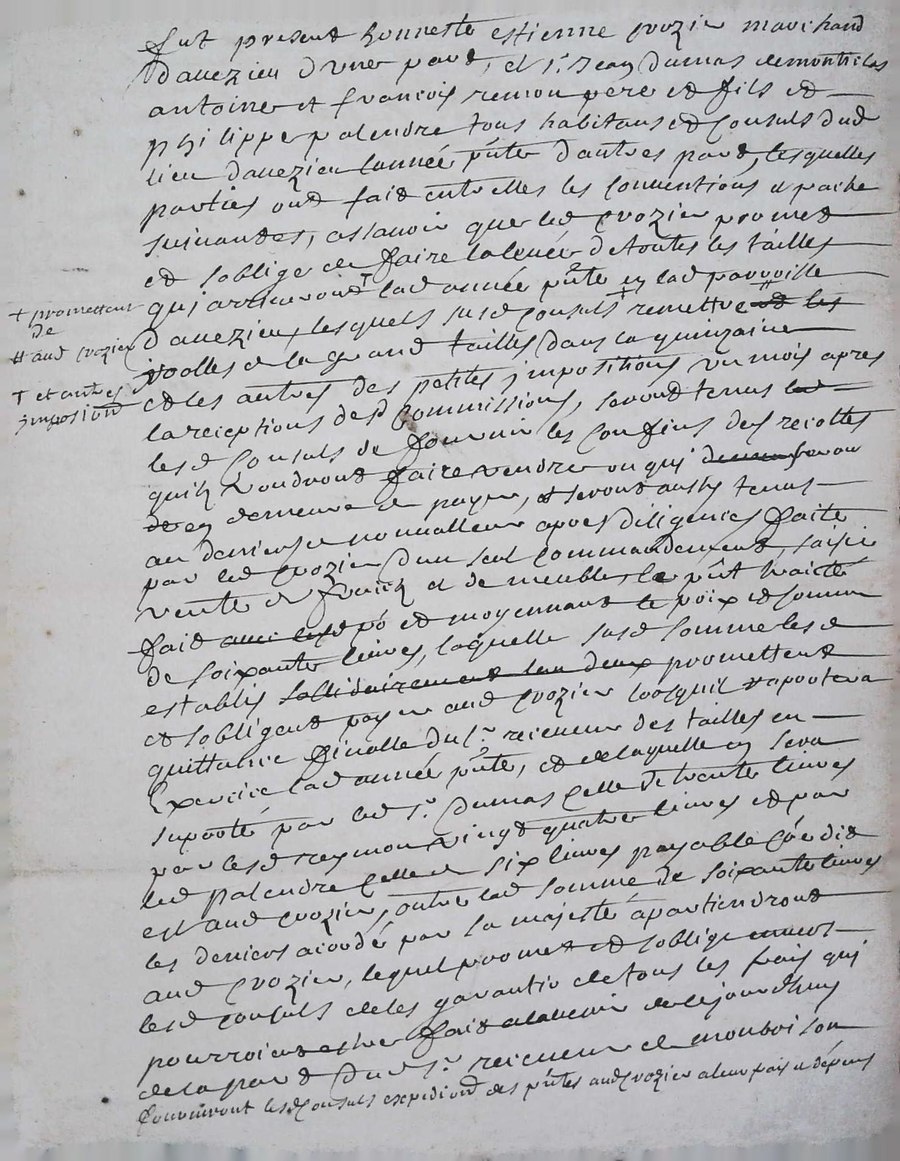 fut present honneste estienne crozier marchand
davezieu d'une part, et sr Jean dumas de
antoine et francois remon pere et fils et
philippe palendre tous habitans et consuls dud
lieu davezieu lannée pnte d'autres part, lesquelles
parties ont fait entrelles les conventions et pache
suivandes, assavoir que led crozier promet
et soblige de faire la levée de toutes les tailles
qui arriveront lad année pnte en lad parroisse
+ promettent
de
davezieu, lesquels susd consuls remettre et les
# aud crozier
roolles de la grand tailles dans la quinzaine
et les autres des petites impositions un mois apres
T et autres
imposion
la receptions des commissions, seront tenus
lesd consuls de fournir les confins des recoltes
quilz voudront faire vendre ou qui seron
en demeure de payer, et seront aussy tenus
au deniers nonvalleur apres diligences faite
par led crozier d'un seul commandement, saisie
vente de fruick et de meubles, le pnt traicté
fait po et moyennant le poix et somme
de soixante livres, laquelle susd somme lesd
establis sollidairement lun deux promettent
et sobligent payer aud crozier lorsquil raportera
quittance finalle du sr receveur des tailles en
exercice lad année pnte, et de laquelle en sera
suporté par led sr dumas celle de trente livres
par lesd reymon vingt quatre livres et par
led palendre celle de six livres payable
est aud crozier, outre lad somme de soixante livres
les deniers acordé par sa majesté apartiendront
aud crozier, lequel promet et soblige envers
lesd consuls de les garantir de tous les frais qui
pourroient estre fait aladvenir de cejourdhuy
de la part dud sr receveur
lesd consuls expedion des pntes aud crozier a leur frais et depens